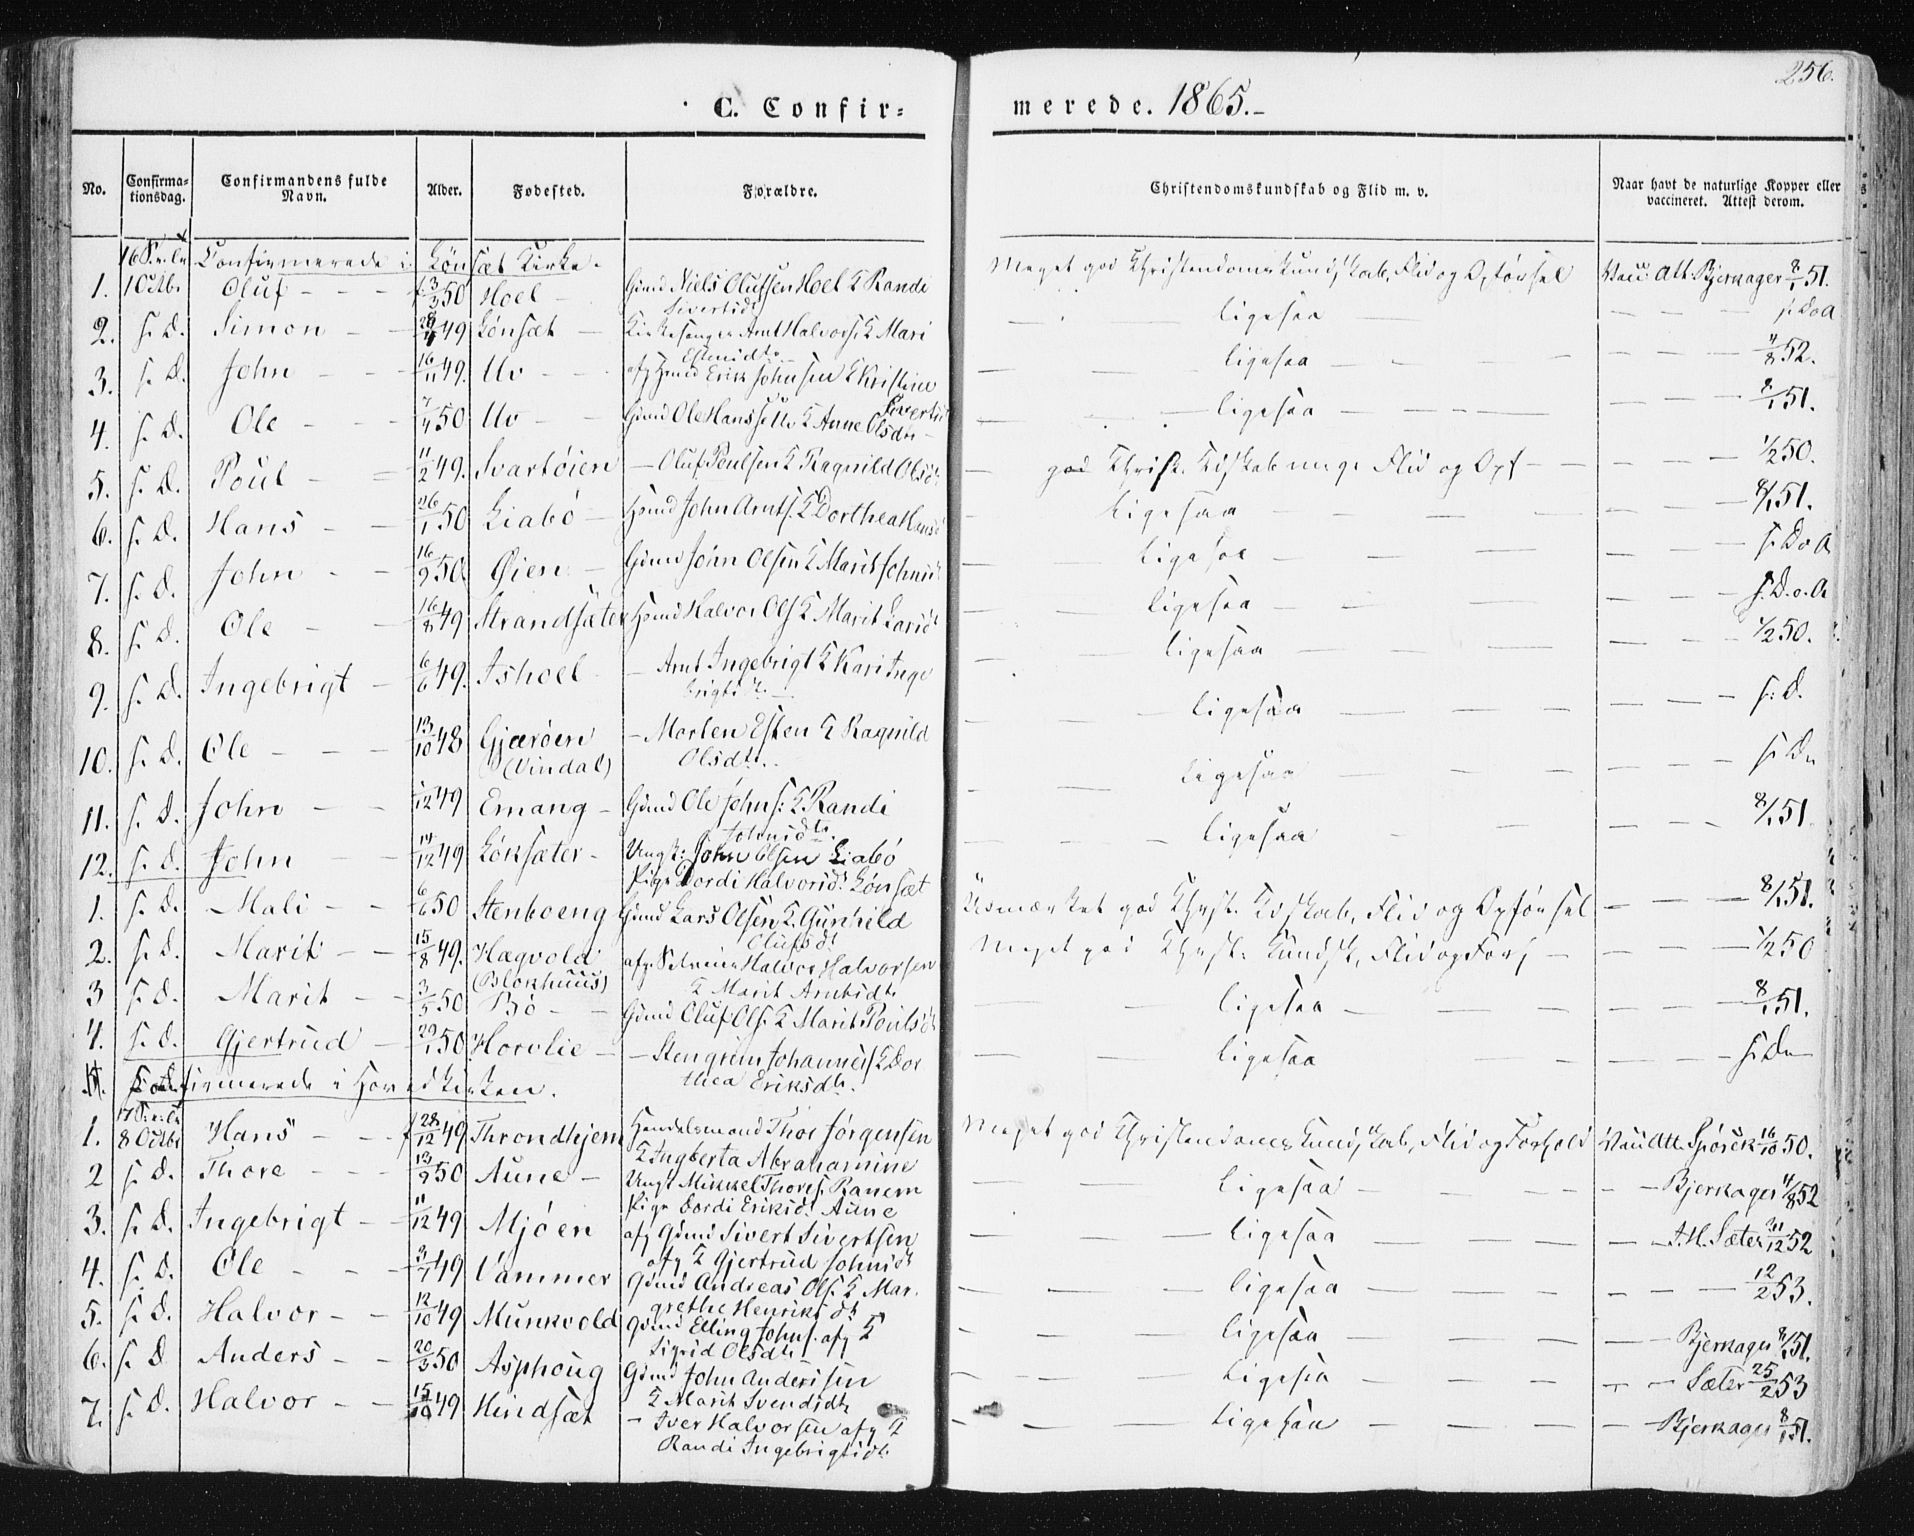 256.
C. Confir= merede. 1865.-
No. Confirma-tionsdag. Confirmandens fulde Navn. Alder. Fødested. Forældre. Christendomskundskab og Flid m. v. Naar havt de naturlige Kopper eller vaccineret. Attest derom.
Confirmerede i Lønsæt Kirke.
1. 1 Octbr Oluf - - - 50 Hoel - Gmd Niels Olufsen Hoel & Randi Sivertsdt Meget god Christendomskundskab, Flid og Opførsel Vacc. Att. Bjerkager 8/1 51.
2. s. D. Simon - - 49 Lønsæt - Kirkesanger Arnt Halvors. & Mari Estensdtr ligesaa s. D o A
3. s. D. John - - - 16/11 49. Uv - - afg Hmd Erik Johnsen & Kristine Sivertsd ligesaa 4/8 52.
4. s. D. Ole - - - 7/4 50 Uv - Gmd Ole Hans & Anne Olsdtr - ligesaa 8/1 51.
5. s. D. Poul - - 11/2 49. Svartøien - Oluf Poulsen & Ragnild Olsdt god Christ. Kdskab meget Flid og Opf - 1/2 50.
6. s. D. Hans - - 26/1 50 Liabø - Hmd John Arnts. & Dorthea Hansd ligesaa 8/1 51.
7. s. D. John - - 16/2 50. Øien - Gmd John Olsen & Marit Johnsd ligesaa s. D o A
8. s. D. Ole - - 16/8 49 Strandsæter Hmd Halvor Ols & Marit Larsd ligesaa s. D. o. A
9. s. D. Ingebrigt - 6/6 49. Ishoel - Arnt Ingebrigt & Kari Inge brigtsdt - ligesaa 1/2 50.
10. s. D. Ole - - - 13/10 48 Gjærøien (Vindal) - Morten Esten & Ragnild Olsdtr. ligesaa s. D.
11. s. D. John - - /12 49 Emang - Gmd Ole Johns: & Randi Johnsdtr. ligesaa s. D
12. s. D. John - - 14/12 49 Løksæter - Ungk: John Olsen Liabø Pige Dordi Halvorsdt Lønsæt ligesaa 8/1 51
1. s. D. Mali - - 6/6 50 Stenboeng Gmd Lars Olsen & Gunhild Olufsdt Udmærket god Christ. Kdskab, Flid og Opførsel 8/1 51.
2. s. D. Marit - - 15/8 49. Hægvold (Blokhuus) afg. Halvor Halvorsen & Marit Arntsdt Meget god Christ. Kundsk, Flid og Forh - 1/2 50
3 s. D. Marit - - 3/5 50 Bø - - Gmd Oluf Ols. & Marit Poulsdt ligesaa 8/1 51.
4. s. D. Gjertrud - 29/1 50 Horvlie - - Stengrim Johannes & Dor thea Eriksdtr. ligesaa s. D
Confirmerede i Hovedkirken.
1. 8 Octbr Hans - - 28/12 49 Throndhjem Handelsmand Thor Jørgensen & Ingberta Abrahamine Meget god Christendomskundskab, Flid og Forhold Vacc Att. 16/10 50.
2 s. D. Thore - - - 13/9 50 Aune - Ungk Mikkel Thores. Ranem Pige Dordi Eriksdt Aune ligesaa - Bjerkager 4/8 52
3. s. D. Ingebrigt - - 11/12 49 Mjøen afg Gmd Sivert Sivertsen afg & Gjertrud Johnsdt ligesaa - J. H. Sæter /12 52
4. s. D. Ole - - - 3/7 49 Vammer Gmd Andreas Ols. & Mar. grethe Henriksdt ligesaa 12/2 53.
5. s. D. Halvor - - 12/10 49 Munkvold Gmd Elling Johns. afg & Sigrid Olsdtr ligesaa - Bjerkager 8/1 51.
6. s. D Anders - - 20/3 50 Asphoug Gmd John Andersen & Marit Svendsdt ligesaa - Sæter 25/2 53
7. s. D. Halvor - - 15/10 49 Hindsæt - Iver Halvorsen afg & Randi Ingebrigtsdt ligesaa - Bjerkager 8/1 51.